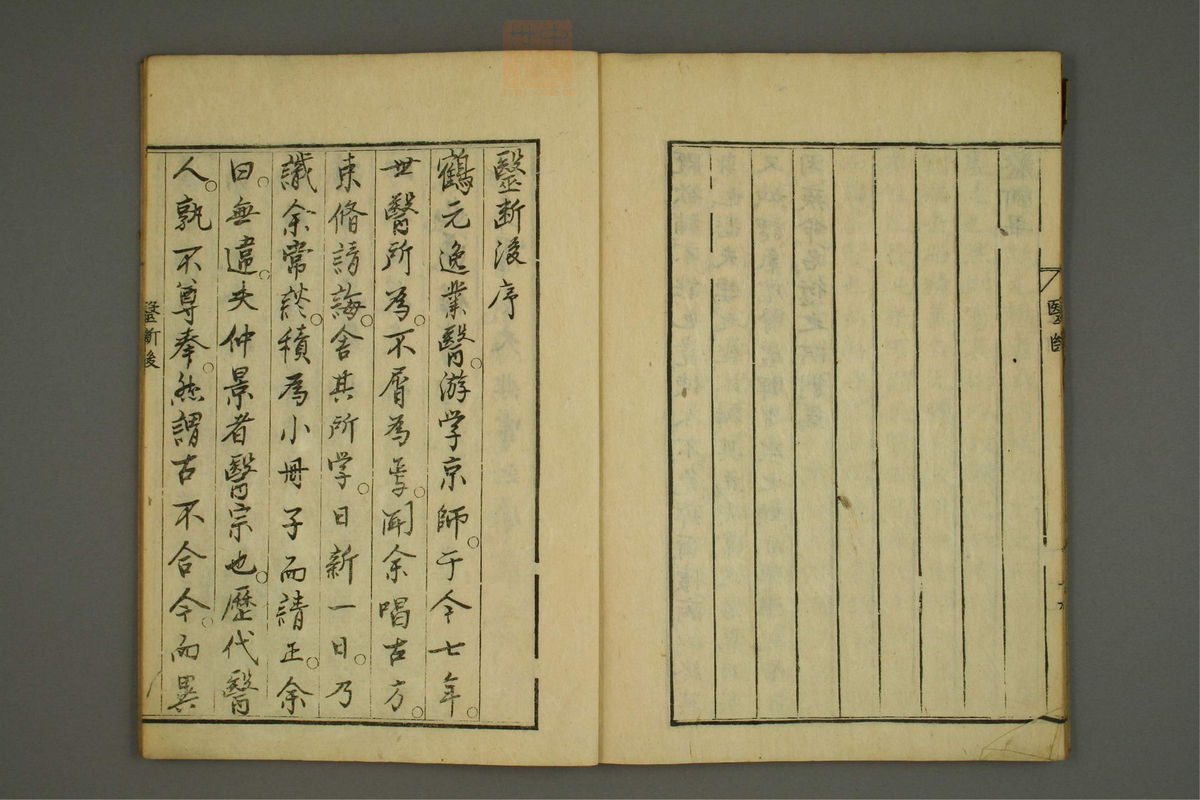 醫斷
醫斷後序
鶴元逸業醫。游学京師。于今七年。
世醫所為。不屑為焉。聞余唱古方。
束脩請誨。舍其所学。日新一日。乃
識余常談。積為小冊子而請正。余
曰。無違。夫仲景者醫宗也。歷代醫
人。孰不尊奉。然謂古不合今。而異
醫斷後